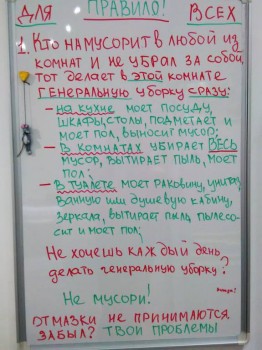 ДЛЯ ПРАВИЛО! ВСЕХ
1. КТО НАМУСОРИТ В ЛЮБОЙ ИЗ
КОМНАТ И НЕ УБРАЛ ЗА СОБОЙ,
ТОТ ДЕЛАЕТ В ЭТОЙ КОМНАТЕ
ГЕНЕРАЛЬНУЮ УБОРКУ СРАЗУ:
— НА КУХНЕ МОЕТ ПОСУДУ,
ШКАФЫ, СТОЛЫ, ПОДМЕТАЕТ И
МОЕТ ПОЛ, ВЫНОСИТ МУСОР;
— В КОМНАТАХ УБИРАЕТ ВЕСЬ
МУСОР, ВЫТИРАЕТ ПЫЛЬ, МОЕТ
ПОЛ;
— В ТУАЛЕТЕ МОЕТ РАКОВИНУ, УНИТАЗ,
ВАННУЮ ИЛИ ДУШЕВУЮ КАБИНУ,
ЗЕРКАЛА, ВЫТИРАЕТ ПЫЛЬ, ПЫЛЕСО-
СИТ И МОЕТ ПОЛ;
НЕ ХОЧЕШЬ КАЖДЫЙ ДЕНЬ
ДЕЛАТЬ ГЕНЕРАЛЬНУЮ УБОРКУ?
НЕ МУСОРИ!
ОТМАЗКИ НЕ ПРИНИМАЮТСЯ
ЗАБЫЛ? ТВОИ ПРОБЛЕМЫ